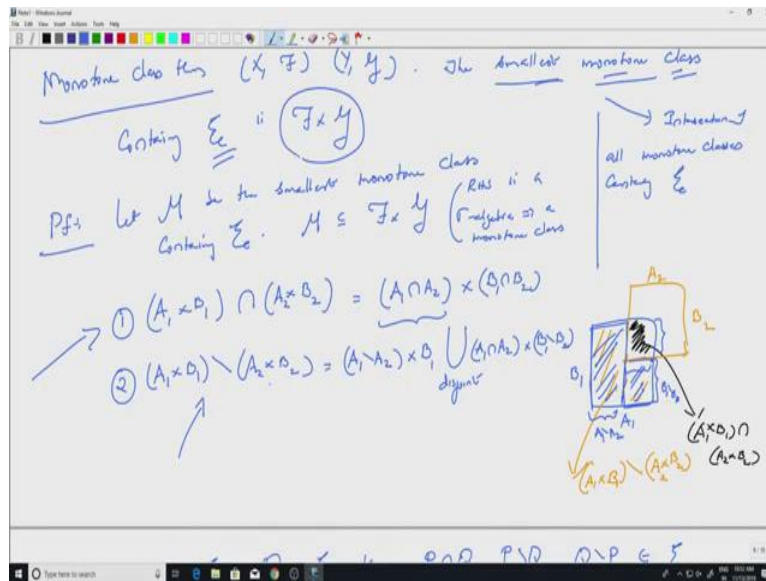 Note1 - Windows Journal
File Edit View Insert Actions Tools Help
Monotone class thm (X, F) (Y, G). The smallest monotone class
Containing ξ_e is F × G
→ Intersection of
all monotone classes
Containing ξ_e
Pf: Let M be the smallest monotone class
Containing ξ_e. M ⊆ F × G (RHS is a
σ-algebra ⇒ a
monotone class
① (A₁ × B₁) ∩ (A₂ × B₂) = (A₁ ∩ A₂) × (B₁ ∩ B₂)
② (A₁ × B₁) \ (A₂ × B₂) = (A₁ \ A₂) × B₁ ⋃ (A₁ ∩ A₂) × (B₁ \ B₂)
disjoint
A₂
B₂
B₁
B₁\B₂
A₁
A₁\A₂
(A₁ × B₁) ∩
(A₂ × B₂)
(A₁ × B₁) \ (A₂ × B₂)
P∩Q P\Q Q\P ∈ ξ
Type here to search